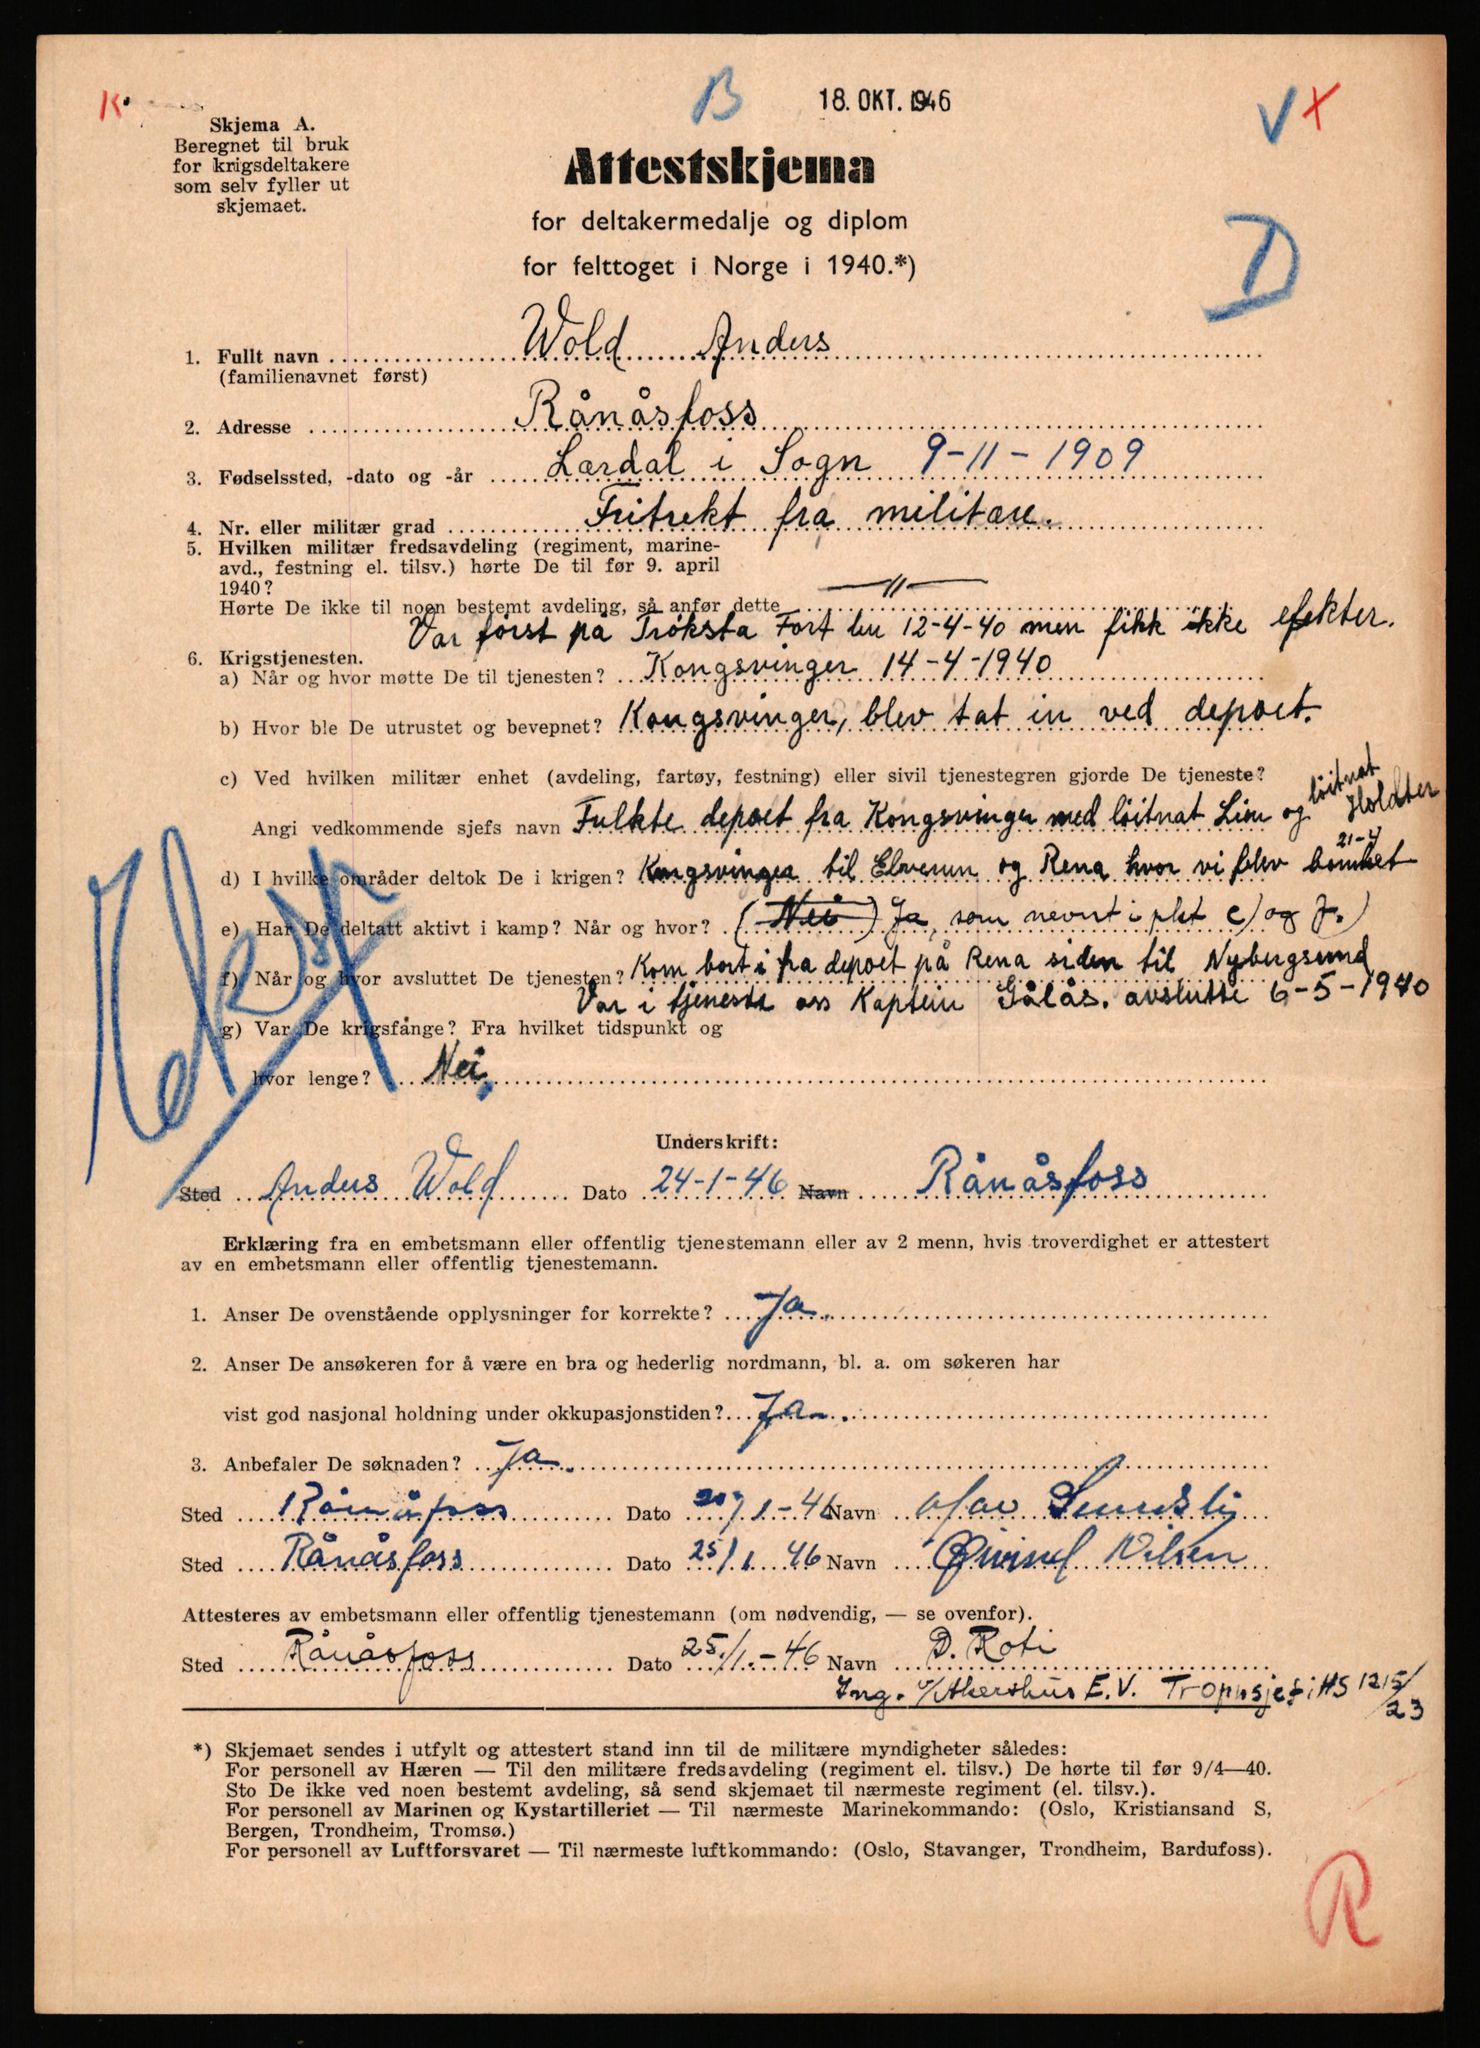 K.
B
18. OKT. 1946
V X
Skjema A.
Beregnet til bruk
for krigsdeltakere
som selv fyller ut
skjemaet.
Attestskjema
for deltakermedalje og diplom
for felttoget i Norge i 1940.*)
D
1. Fullt navn Wold Anders
(familienavnet først)
2. Adresse Rånåsfoss
3. Fødselssted, -dato og -år Lærdal i Sogn 9-11-1909
4. Nr. eller militær grad Fritrekt fra militære.
5. Hvilken militær fredsavdeling (regiment, marine-
avd., festning el. tilsv.) hørte De til før 9. april
1940?
Hørte De ikke til noen bestemt avdeling, så anfør dette —〃—
Var først på Trøksta Fort den 12-4-40 men fikk ikke efekter.
6. Krigstjenesten.
a) Når og hvor møtte De til tjenesten? Kongsvinger 14-4-1940
b) Hvor ble De utrustet og bevepnet? Kongsvinger, blev tat in ved depoet.
c) Ved hvilken militær enhet (avdeling, fartøy, festning) eller sivil tjenestegren gjorde De tjeneste?
Angi vedkommende sjefs navn Fulkte depoet fra Kongsvinger med løitnat Lien og løitnat Holdter
d) I hvilke områder deltok De i krigen? Kongsvinger til Elverum og Rena hvor vi blev bombet 21-4
e) Har De deltatt aktivt i kamp? Når og hvor? (Nei) Ja, som nevnt i pkt c) og f.)
f) Når og hvor avsluttet De tjenesten? Kom bort i fra depoet på Rena siden til Nybergsund
Var i tjeneste oss Kaptein Gålås. avslutte 6-5-1940
g) Var De krigsfange? Fra hvilket tidspunkt og
hvor lenge? Nei.
Underskrift:
Sted Anders Wold Dato 24-1-46 Navn Rånåsfoss
Erklæring fra en embetsmann eller offentlig tjenestemann eller av 2 menn, hvis troverdighet er attestert
av en embetsmann eller offentlig tjenestemann.
1. Anser De ovenstående opplysninger for korrekte? Ja.
2. Anser De ansøkeren for å være en bra og hederlig nordmann, bl. a. om søkeren har
vist god nasjonal holdning under okkupasjonstiden? Ja.
3. Anbefaler De søknaden? Ja.
Sted Rånåsfoss Dato /1-46 Navn Olav
Sted Rånåsfoss Dato 25/1 46 Navn Øivind Nilsen
Attesteres av embetsmann eller offentlig tjenestemann (om nødvendig, — se ovenfor).
Sted Rånåsfoss Dato 25./1.-46 Navn D. Roti
Ing. v/Akershus E.V. Troppsjef i HS 1215/23
*) Skjemaet sendes i utfylt og attestert stand inn til de militære myndigheter således:
For personell av Hæren — Til den militære fredsavdeling (regiment el. tilsv.) De hørte til før 9/4—40.
Sto De ikke ved noen bestemt avdeling, så send skjemaet til nærmeste regiment (el. tilsv.).
For personell av Marinen og Kystartilleriet — Til nærmeste Marinekommando: (Oslo, Kristiansand S,
Bergen, Trondheim, Tromsø.)
For personell av Luftforsvaret — Til nærmeste luftkommando: (Oslo, Stavanger, Trondheim, Bardufoss).
R